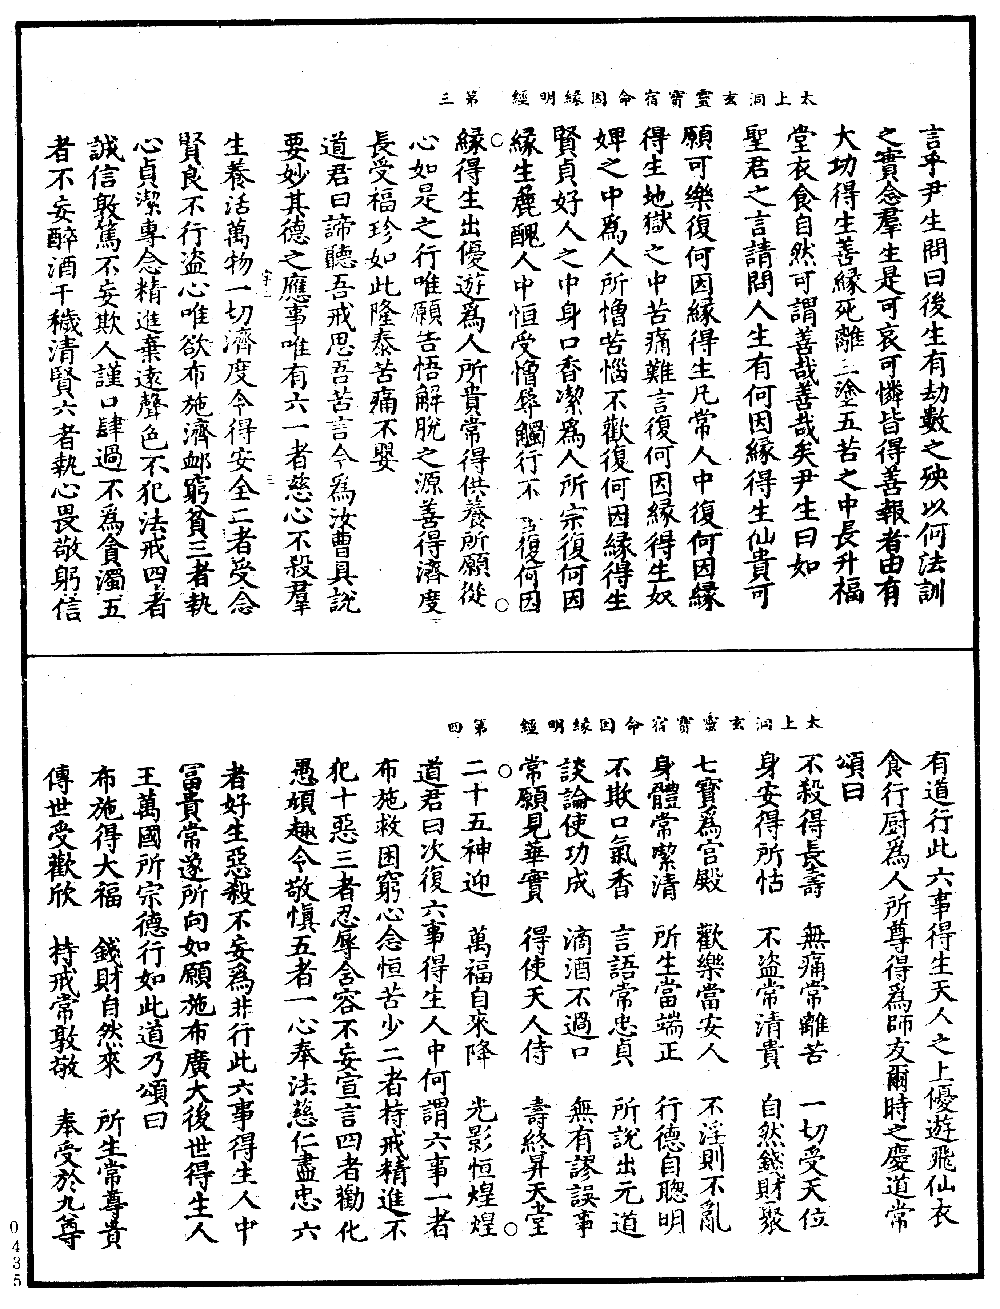 太上洞玄靈寶宿命因緣明經　第三
言乎尹生問曰後生有劫數之殃以何法訓
之實念羣生是可哀可憐皆得善報者由有
大功得生善緣死離三塗五苦之中長升福
堂衣食自然可謂善哉善哉矣尹生曰如
聖君之言請問人生有何因緣得生仙貴可
願可樂復何因緣得生凡常人中復何因緣
得生地獄之中苦痛難言復何因緣得生奴
婢之中爲人所憎苦惱不歡復何因緣得生
賢貞好人之中身口香潔爲人所宗復何因
緣生麁醜人中恒受憎辱觸行不 復何因
緣得生出優遊爲人所貴常得供養所願從
心如是之行唯願告悟解脫之源善得濟度
長受福珍如此隆泰苦痛不嬰
道君曰諦聽吾戒思吾苦言今爲汝曹具說
要妙其德之應事唯有六一者慈心不殺羣
生養活萬物一切濟度令得安全二者受念
賢良不行盜心唯欲布施濟卹窮貧三者執
心貞潔專念精進棄遠聲色不犯法戒四者
誠信敦篤不妄欺人謹口肆過不爲貪濁五
者不妄醉酒干穢清賢六者執心畏敬躬信
太上洞玄靈寶宿命因緣明經　第四
有道行此六事得生天人之上優遊飛仙衣
食行厨爲人所尊得爲師友爾時之慶道常
頌曰
不殺得長壽　無痛常離苦　一切受天位
身安得所怙　不盜常清貴　自然錢財聚
七寶爲宮殿　歡樂當安人　不淫則不亂
身體常潔清　所生當端正　行德自聰明
不欺口氣香　言語常忠貞　所說出元道
談論使功成　滴酒不過口　無有謬誤事
常願見華實　得使天人侍　壽終昇天堂
二十五神迎　萬福自來降　光影恒煌煌
道君曰次復六事得生人中何謂六事一者
布施救困窮心念恒苦少二者持戒精進不
犯十惡三者忍辱含容不妄宣言四者勸化
愚頑趣令敬慎五者一心奉法慈仁盡忠六
者好生惡殺不妄爲非行此六事得生人中
冨貴常遂所向如願施布廣大後世得生人
王萬國所宗德行如此道乃頌曰
布施得大福　錢財自然來　所生常尊貴
傳世受歡欣　持戒常敦敬　奉受於九尊
0435